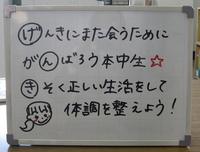 げんきにまた会うために
がんばろう本中生☆
きそく正しい生活をして
体調を整えよう！